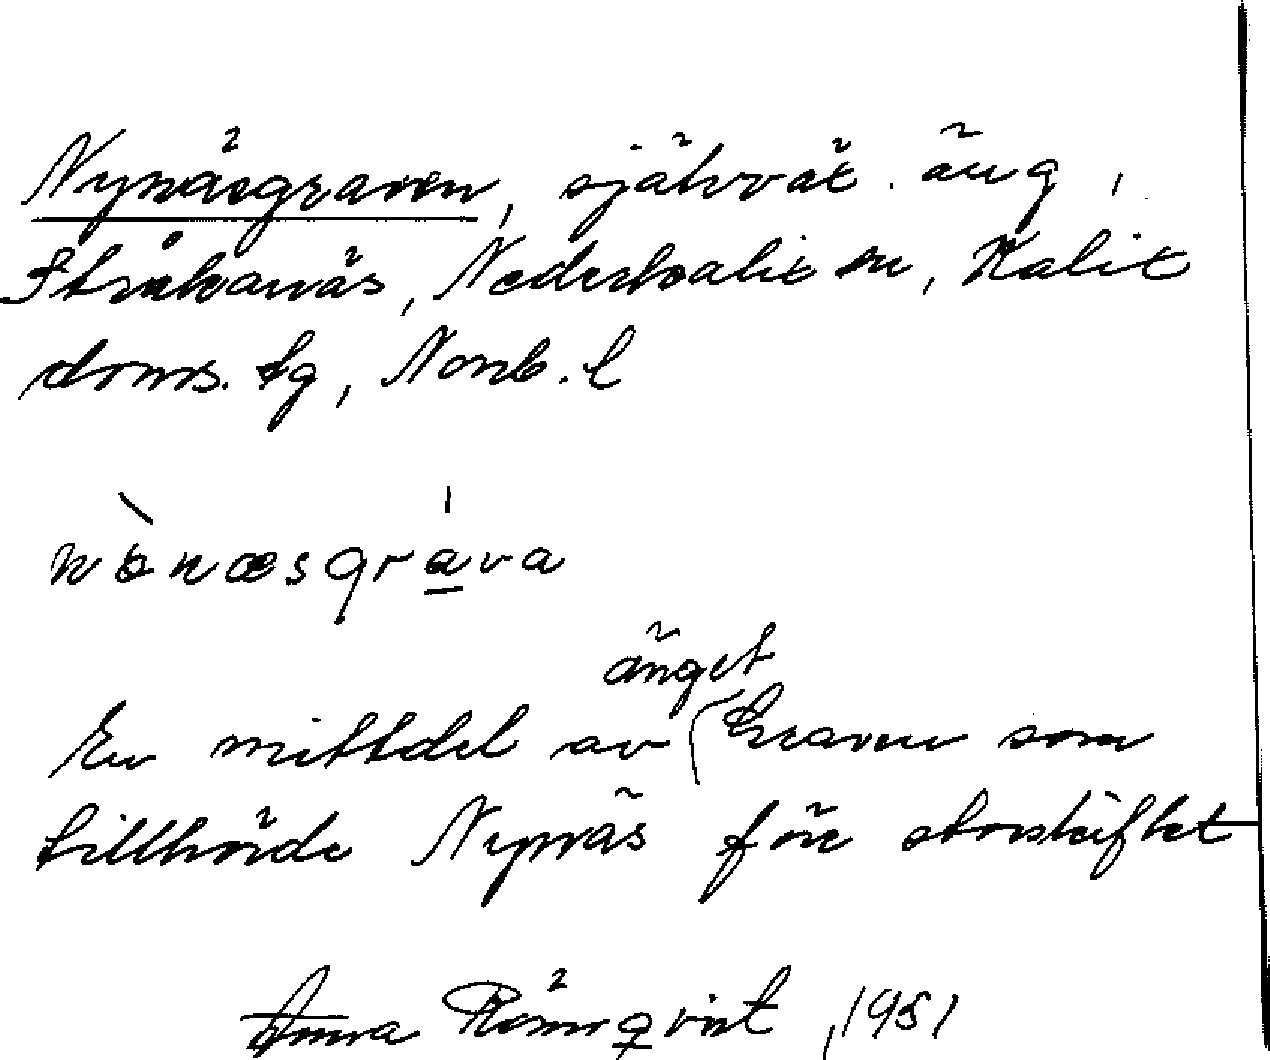 Nynäsgraven, självät. äng,
Stråkanäs, Nederkalix sn, Kalix
doms. tg, Norrb. l
änget
En mittdel av Graven som
tillhörde Nynäs före storskiftet
Anna Rönnqvist, 1951